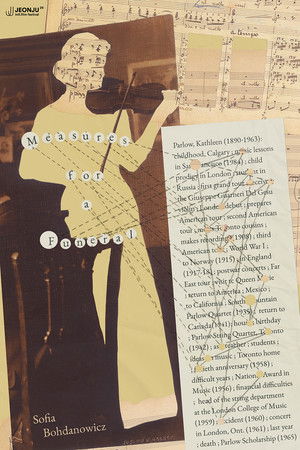 JEONJU
intl. film festival
Measures
for
a
Funeral
Parlow, Kathleen (1890-1963):
childhood, Calgary ; music lessons
in San Francisco ; child
prodigy in London ; in
Russia ; first grand tour ; receives
the Giuseppe Guarneri Del Gesù
violin ; London debut ; prepares
American tour ; second American
tour ; cousins ;
makes recordings ; third
American tour ; World War I ;
to Norway (1915) ; in England
(1917-18) ; postwar concerts ; Far
East tour ; to Queen Marie
; return to America ; Mexico ;
to California ; South
Parlow Quartet (1935) ; return to
Canada (1941) ; birthday
; Parlow String Quartet, Toronto
(1942) ; as teacher ; students ;
ideas music ; Toronto home
; anniversary (1958) ;
difficult years ; National Award in
Music (1956) ; financial difficulties
; head of the string department
at the London College of Music
(1959) ; accident (1960) ; concert
in London, Ont. (1961) ; last year
; death ; Parlow Scholarship (1965)
Sofia
Bohdanowicz